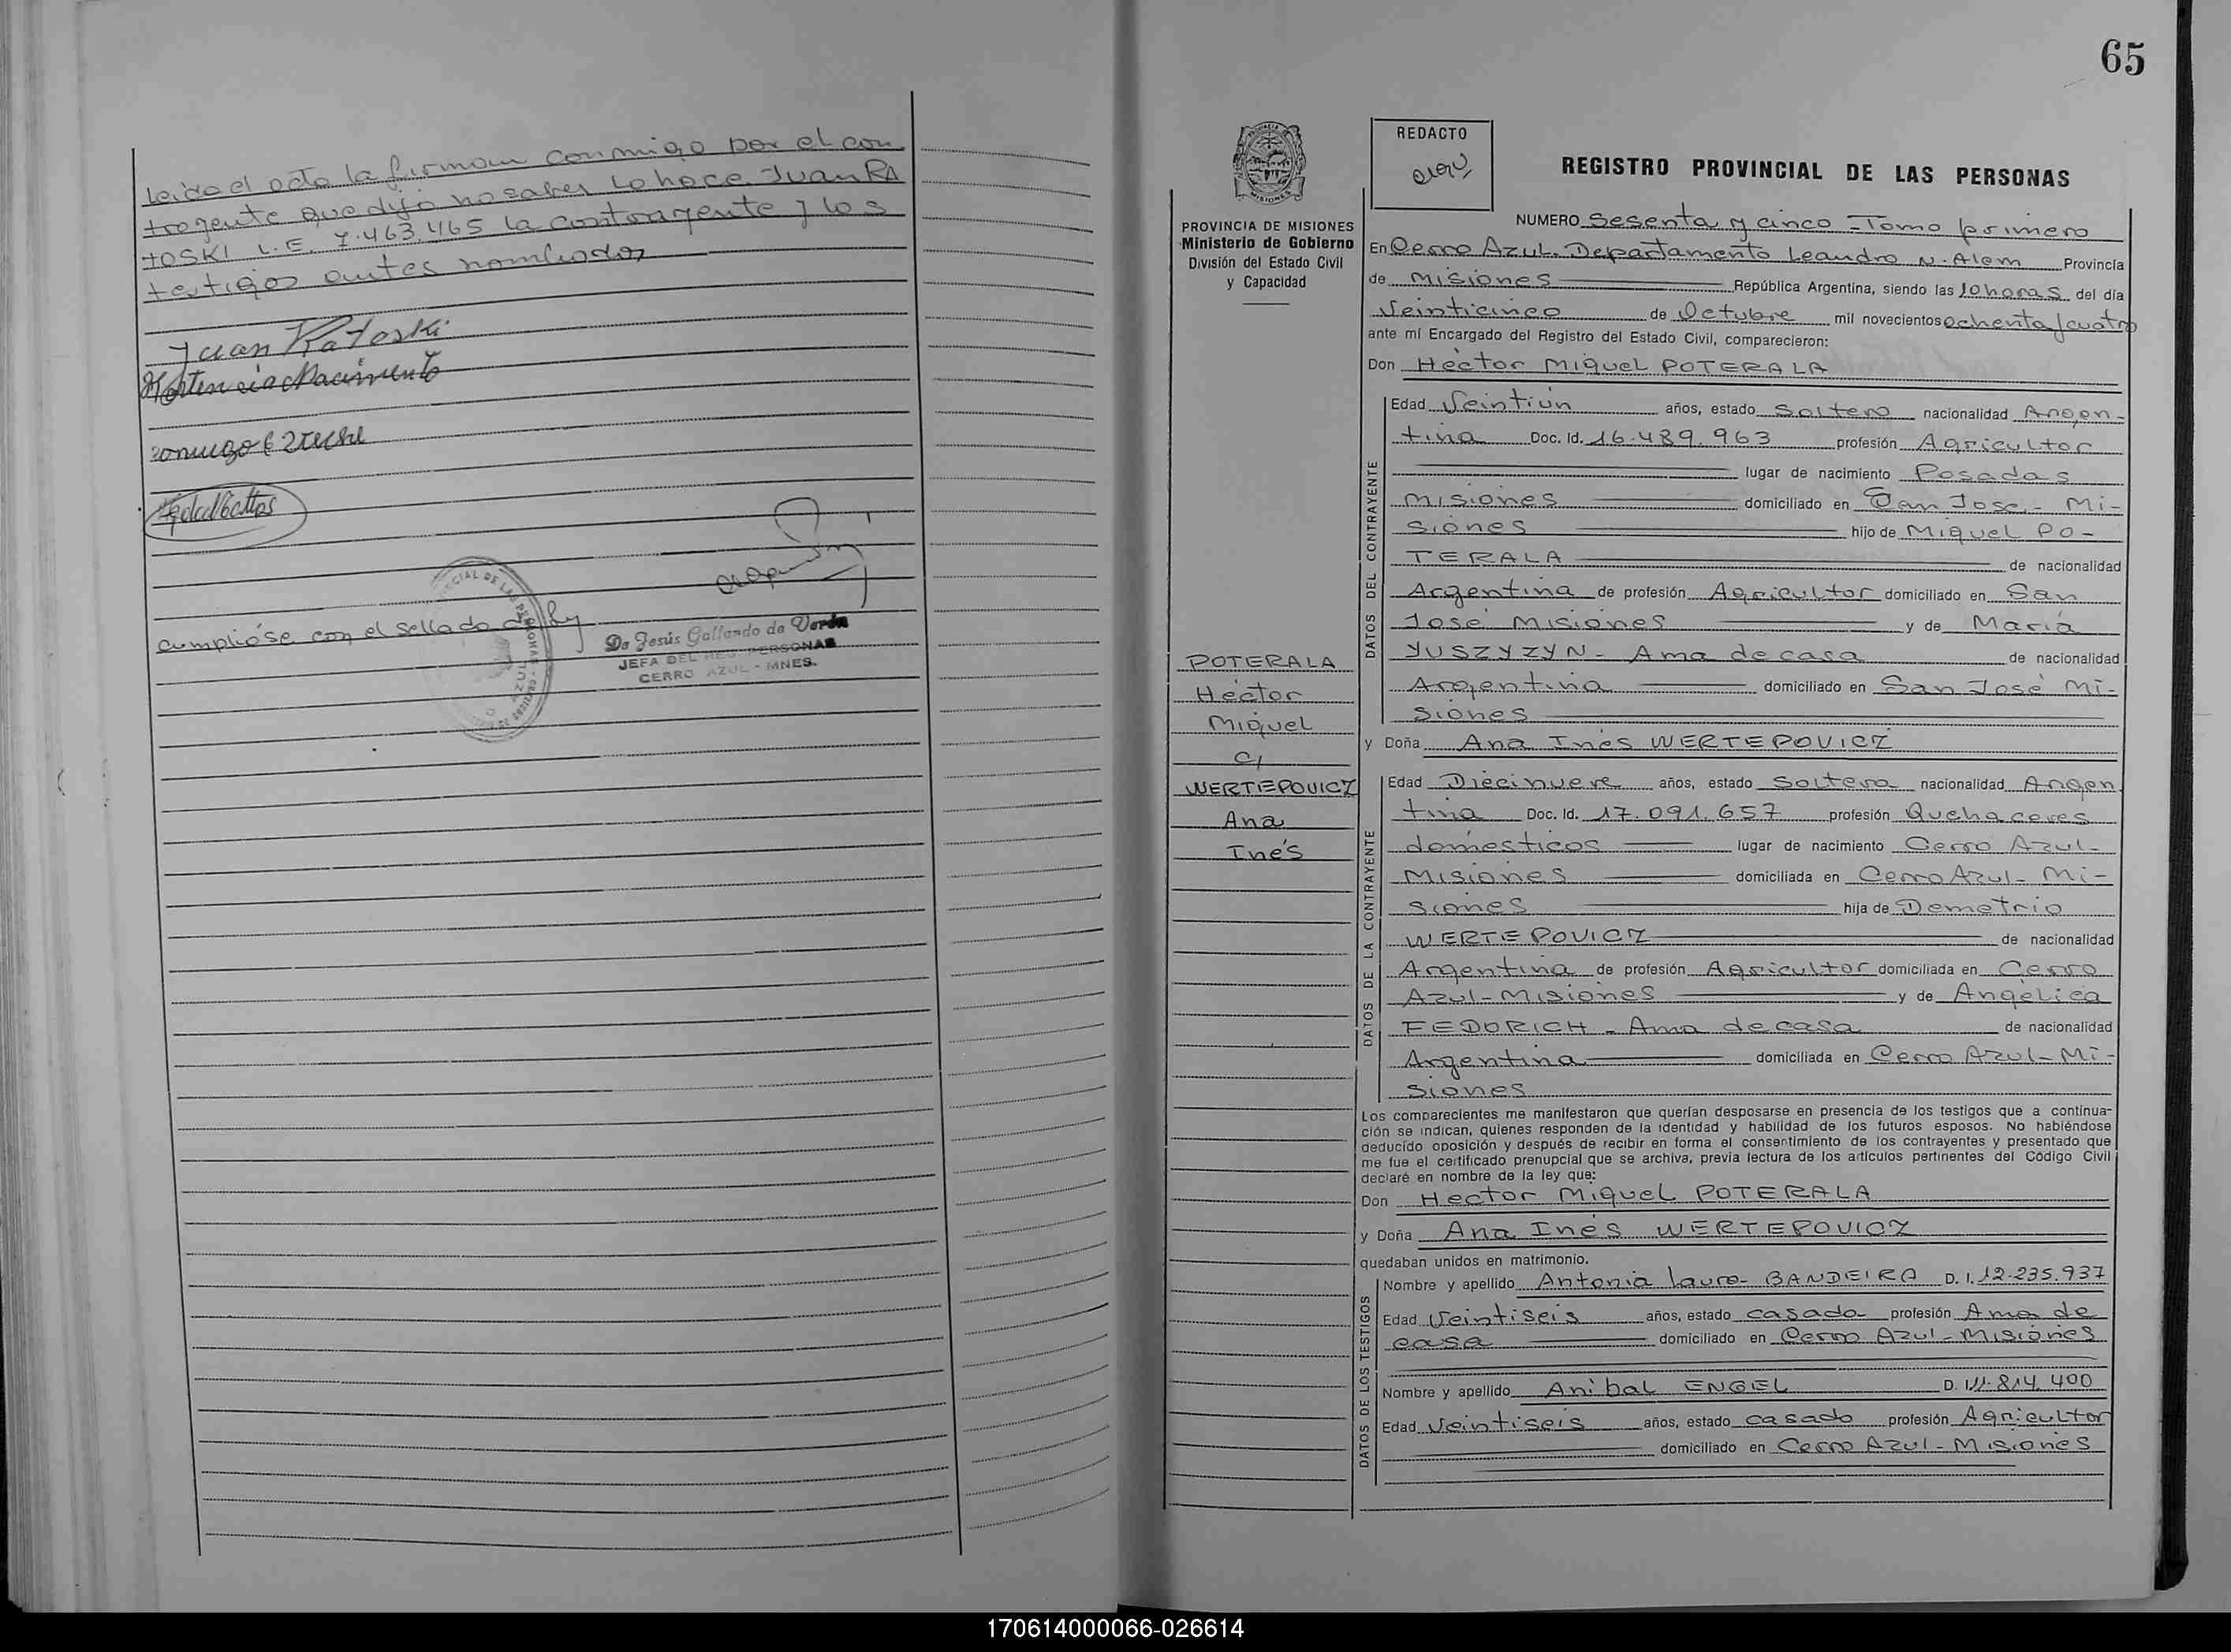 Leida el acta la firman conmigo por el con
trayente que dijo no saber lo hace Juan RA
TOSKI L.E. 7.463.465 la contrayente y los
testigos antes nombrados
Juan Ratoski
Hortencia Nacimiento
Cumplióse con el sellado de ley
De Jesús Gallardo de Verón
JEFA DEL REG. PERSONAS
CERRO AZUL - MNES.
65
PROVINCIA DE MISIONES
Ministerio de Gobierno
División del Estado Civil
y Capacidad
POTERALA
Héctor
Miguel
c/
WERTEPOVICZ
Ana
Inés
REDACTO
REGISTRO PROVINCIAL DE LAS PERSONAS
NUMERO Sesenta y cinco - Tomo primero
En Cerro Azul. Departamento Leandro N. Alem Provincia
de Misiones República Argentina, siendo las 10 horas del día
Veinticinco de Octubre mil novecientos ochenta y cuatro
ante mí Encargado del Registro del Estado Civil, comparecieron:
Don Héctor Miguel POTERALA
DATOS DEL CONTRAYENTE
Edad Veintiún años, estado Soltero nacionalidad Argen-
tina Doc. Id. 16.489.963 profesión Agricultor
lugar de nacimiento Posadas
Misiones domiciliado en San José - Mi-
siones hijo de Miguel PO-
TERALA de nacionalidad
Argentina de profesión Agricultor domiciliado en San
José Misiones y de María
YUSZYZYN - Ama de casa de nacionalidad
Argentina domiciliado en San José Mi-
siones
y Doña Ana Inés WERTEPOVICZ
DATOS DE LA CONTRAYENTE
Edad Diecinueve años, estado Soltera nacionalidad Argen
tina Doc. Id. 17.091.657 profesión Quehaceres
domésticos lugar de nacimiento Cerro Azul-
Misiones domiciliada en Cerro Azul - Mi-
siones hija de Demetrio
WERTEPOVICZ de nacionalidad
Argentina de profesión Agricultor domiciliada en Cerro
Azul - Misiones y de Angélica
FEDORICH - Ama de casa de nacionalidad
Argentina domiciliada en Cerro Azul - Mi-
siones
Los comparecientes me manifestaron que querían desposarse en presencia de los testigos que a continua-
ción se indican, quienes responden de la identidad y habilidad de los futuros esposos. No habiéndose
deducido oposición y después de recibir en forma el consentimiento de los contrayentes y presentado que
me fue el certificado prenupcial que se archiva, previa lectura de los artículos pertinentes del Código Civil
declaré en nombre de la ley que:
Don Hector Miguel POTERALA
y Doña Ana Inés WERTEPOVICZ
quedaban unidos en matrimonio.
DATOS DE LOS TESTIGOS
Nombre y apellido Antonia Laura BANDEIRA D. I. 12.235.937
Edad Veintiseis años, estado casada profesión Ama de
casa domiciliado en Cerro Azul - Misiones
Nombre y apellido Anibal ENGEL D. 11.814.400
Edad Veintiseis años, estado casado profesión Agricultor
domiciliado en Cerro Azul - Misiones
170614000066-026614